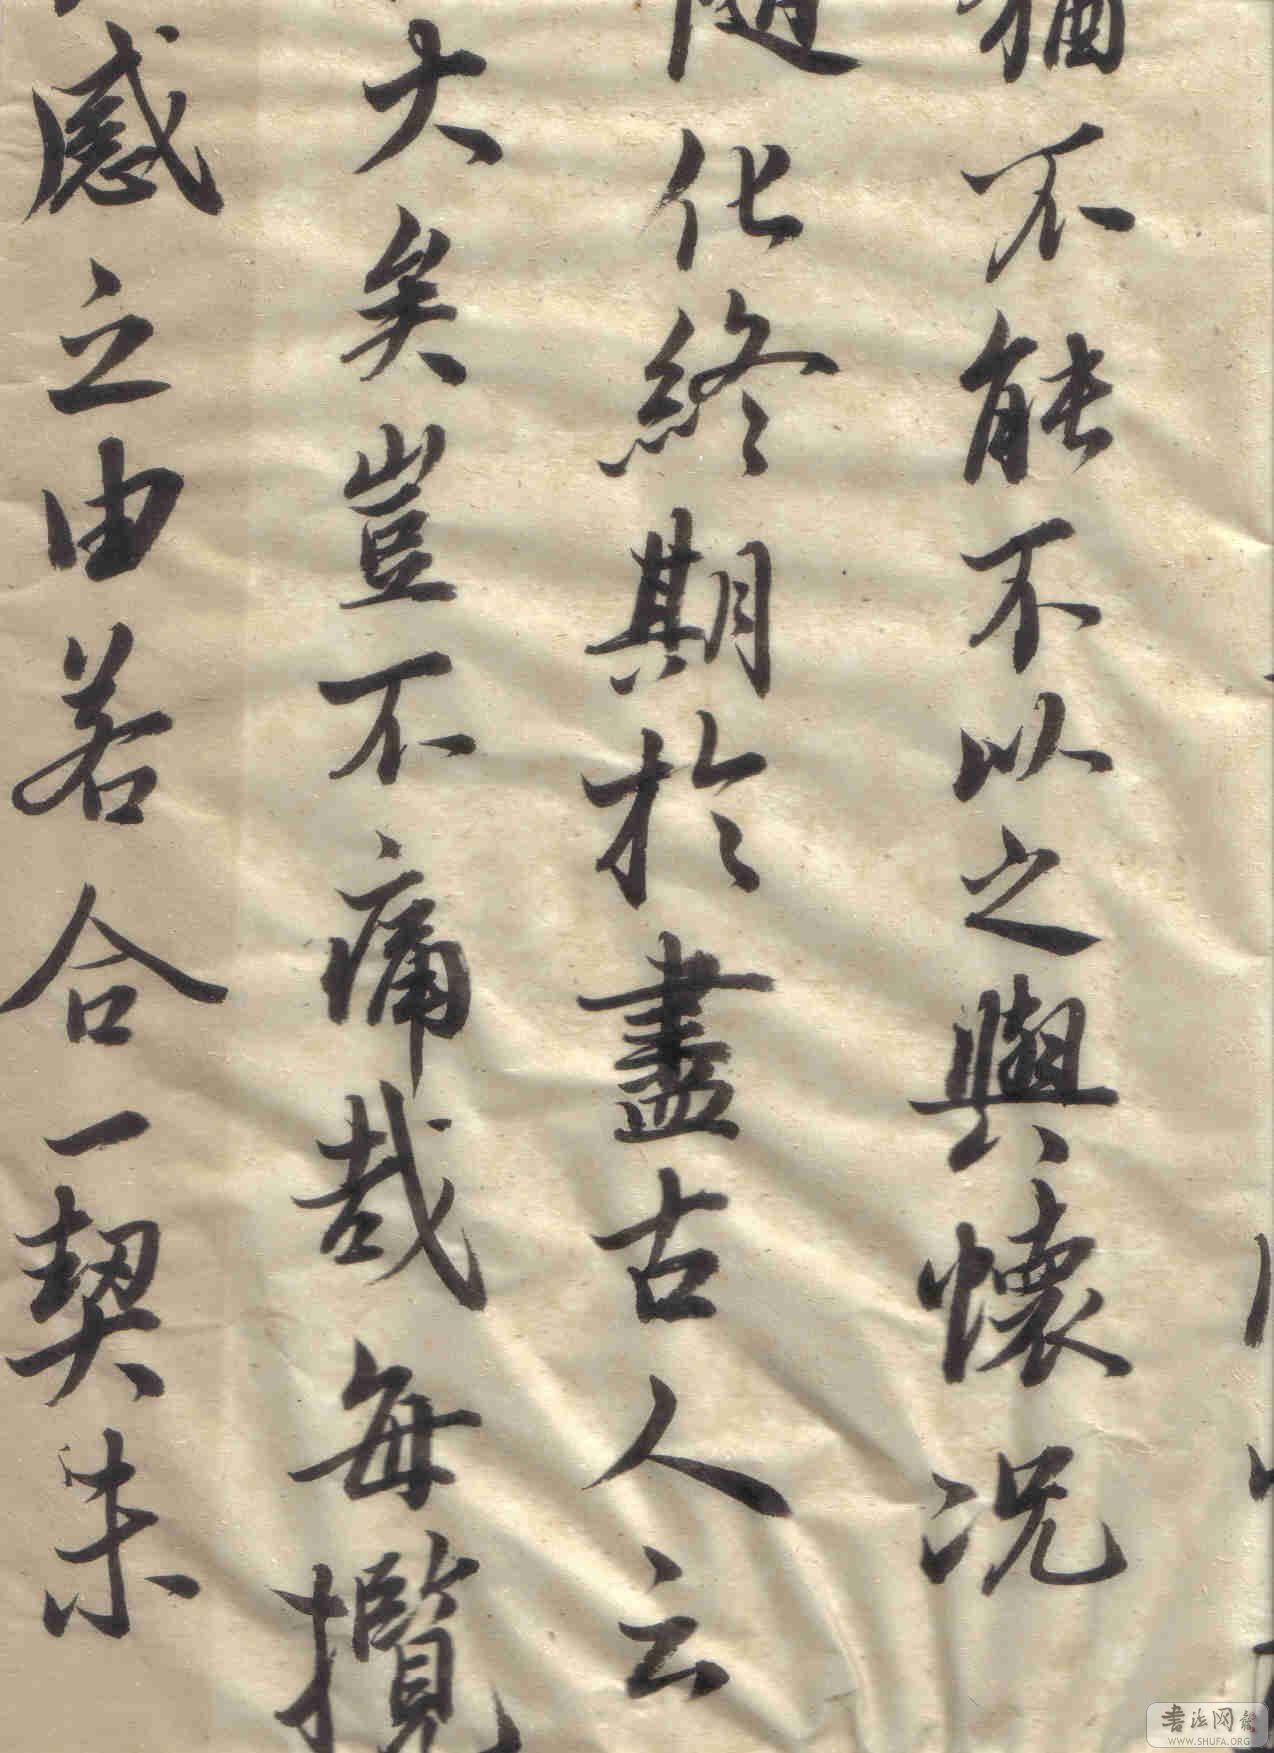 猶不能不以之興懷況
隨化終期於盡古人云
大矣豈不痛哉每攬
感之由若合一契未
書法网
WWW.SHUFA.ORG